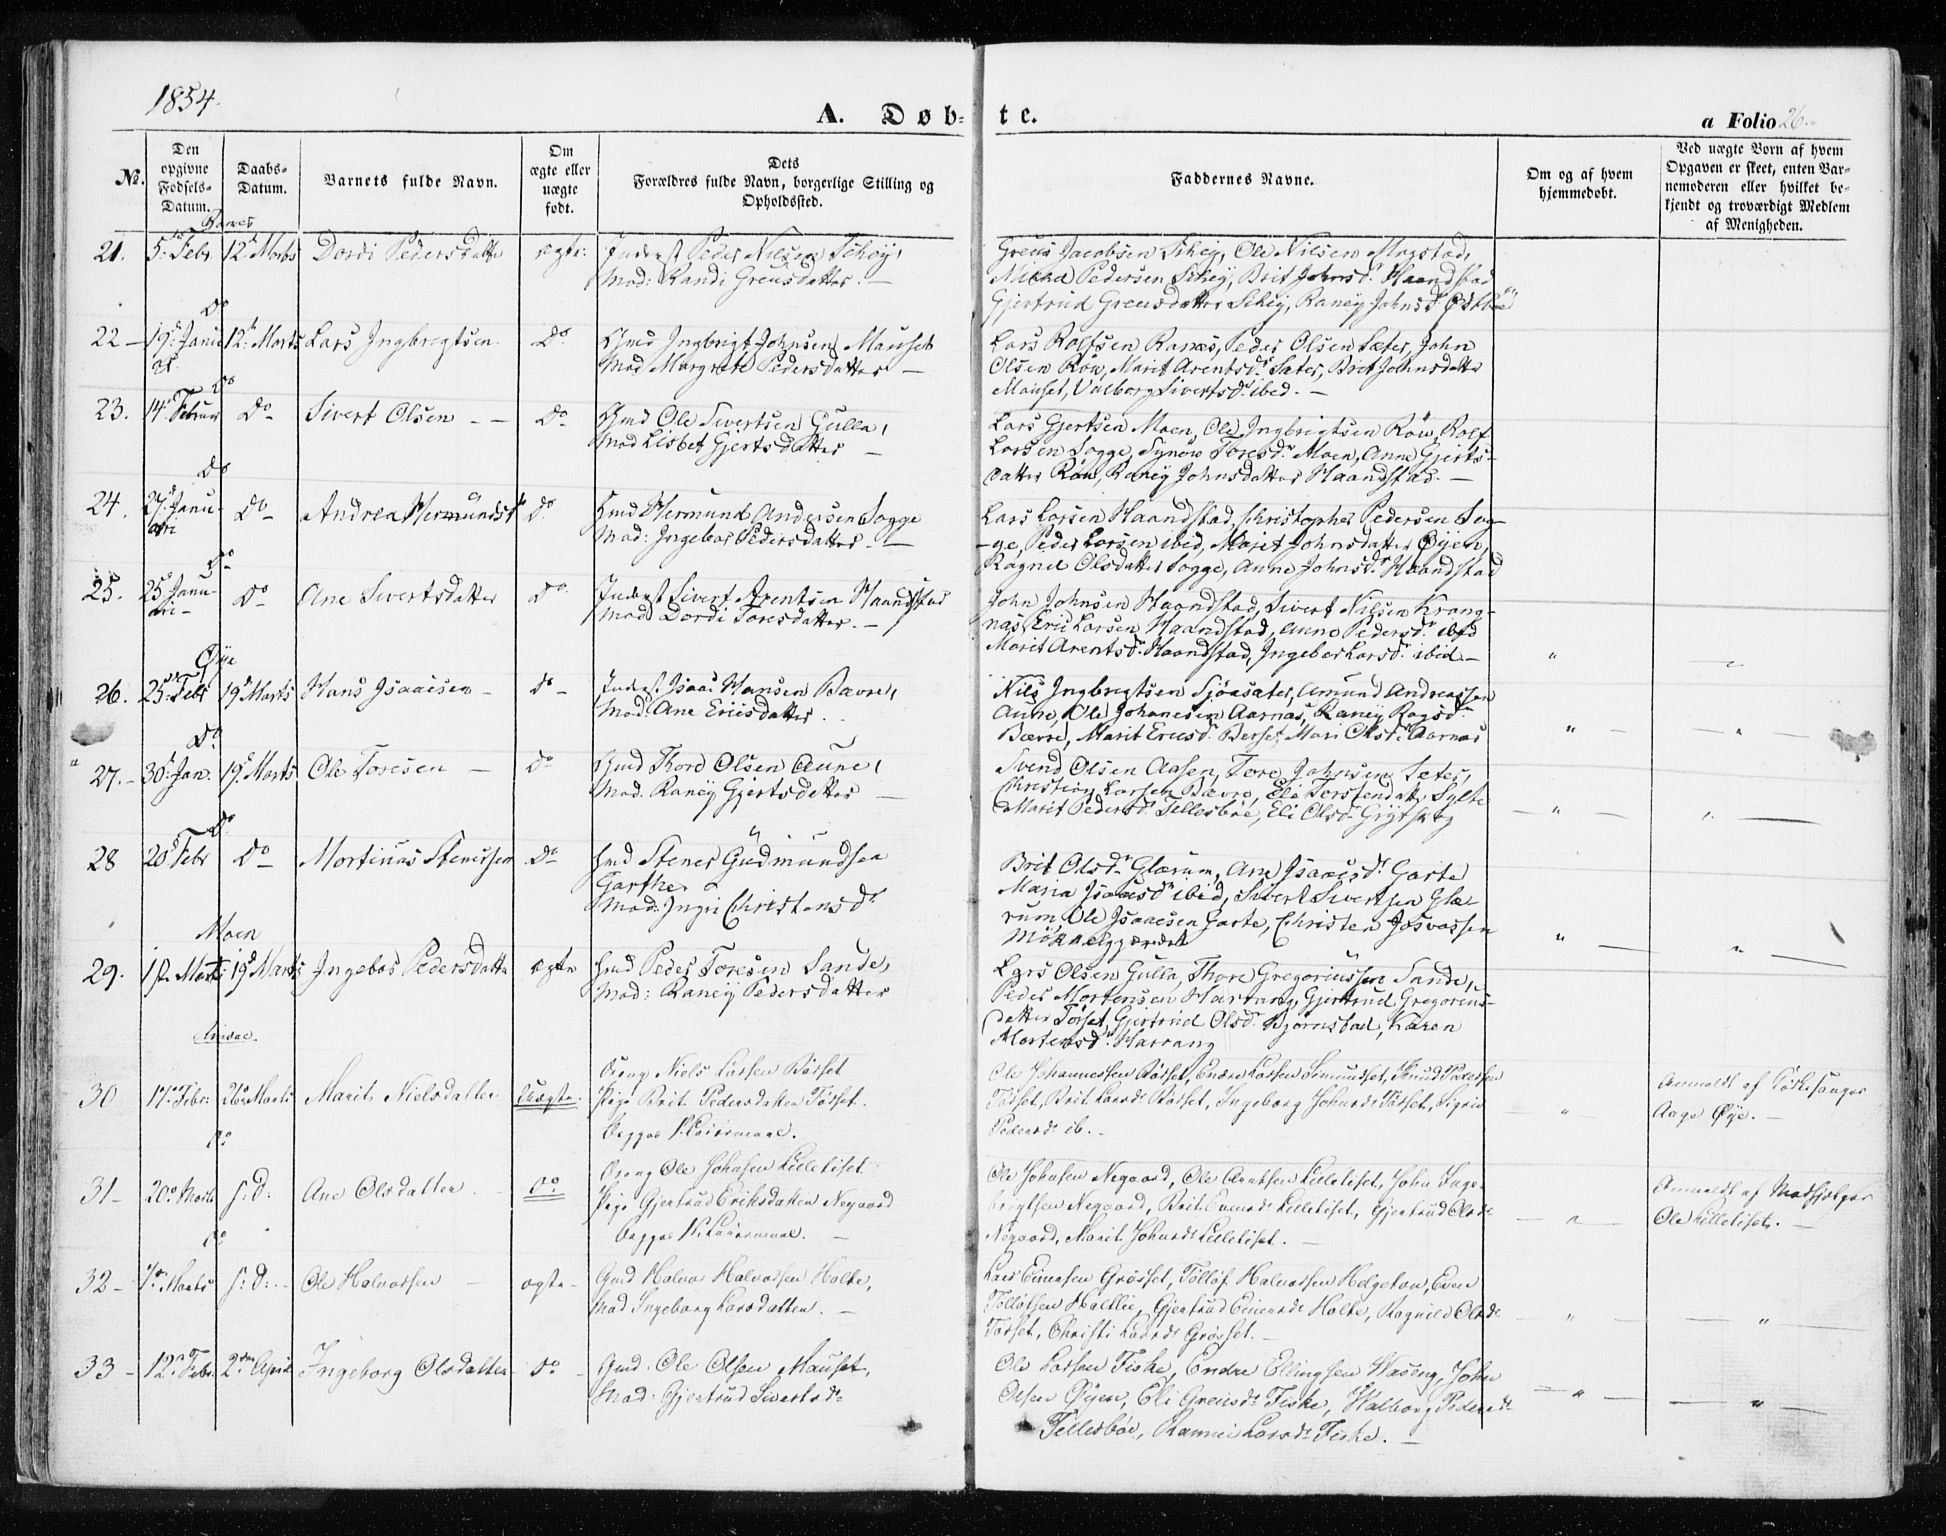 1854.
A. Døb-
te.
a Folio 26.
No.
Den opgivne Fødsels-Datum.
Daabs-Datum.
Barnets fulde Navn.
Om ægte eller uægte født.
Dets Forældres fulde Navn, borgerlige Stilling og Opholdssted.
Faddernes Navne.
Om og af hvem hjemmedøbt.
Ved uægte Børn af hvem Opgaven er skeet, enten Barnemoderen eller hvilket bekjendt og troværdigt Medlem af Menigheden.
Ranes
21. 5. Febr 12 Marts Dordi Pedersdatter ægte: Inderst Peder Nilsen Schey,
Mod: Randi Greusdatter. —
Greus Jacobsen Schey, Ole Nilsen Mogstad,
Pedersen Schey, Brit Johnsd. Haandstad
Gjertrud Greusdatter Schey, Raney Johnsd.
Do
22 — 19. Janu 12. Marts Lars Ingbrigtsen Do. Gmd Ingbrigt Johnsen Mauset
Mod Margrete Pedersdatter —
Lars Rolfsen Ranæs, Peder Olsen Sæter, John
Olsen Røv, Marit Arentsd. Sæter, Brit Johnsdatter
Mauset, Valborg Sivertsd. ibed. —
Do
23. 14. Februar Do Sivert Olsen — — Do Gmd Ole Sivertsen Gulla,
Mod Lisbet Gjertsdatter —
Lars Gjertsen Moen, Ole Ingbrigtsen Røv, Rolf
Larsen Sogge, Synøv Toresd. Moen, Anne Gjerts-
datter Røv, Raney Johnsdatter Haandstad. —
Do
24. 27. Janu-
ari Do — Andrea Hermundsd. Do Gmd Hermund Andersen Sogge
Mod: Ingebor Pedersdatter. —
Lars Larsen Haandstad, Christopher Pedersen Sog-
-ge, Peder Larsen ibid, Marit Johnsdatter Øyen,
Ragnel Olsdatter Sogge, Anne Johnsd. Haandstad
Do
25. 25 Janu-
ari — Do — Ane Sivertsdatter Do. Inderst Sivert Arentsen Haandstad
Mod Dordi Toresdatter. —
John Johnsen Haandstad, Sivert Nilsen Krang-
næs, Eric Larsen Haandstad, Anne Pedersd. ibid
Marit Arentsd. Haandstad, Ingebor Larsd. ibid —
Øye
26. 25. Febr 19 Marts Hans Isaacsen — Do — Inderst Isaac Hansen Bævre,
Mod. Ane Ericsdatter.
Nils Ingbrigtsen Sjøasæter, Amund Andreassen
Aune, Ole Johanesen Aarnæs, Raney
Bævre, Marit Ericsd. Berset, Mari Olsd. Aarnæs
Do
27. — 30. Jan. 19. Marts Ole Toresen — Do Gmd Thore Olsen Aune,
Mod. Raney Gjertsdatter —
Svend Olsen Aasen, Tore Johnsen Sæter,
Christian Larsen Bævre, Eli Torstendatter Sylte
Marit Pedersd. Tellesbøe, Eli Olsd. Grytskog
Do
28 20 Febr Do — Mortinus Stenersen Do Gmd Stener Gudmundsen
Garthe
Mod: Ingri Christensd.
Brit Olsd. Glærum, Ane Isaacsd. Garte
Maria Isaacsd. ibid, Sivert Sivertsen Glæ-
rum, Ole Isaacsen Garte, Christen
Moen
29. 1. Marts 19 Marts Ingebor Pedersdatter ægte Gmd Peder Toresen Sande,
Mod: Raney Pedersdatter
Lars Olsen Gulla, Thore Gregoriussen Sande,
Peder Mortensen Harrang, Gjertrud Gregorius-
datter Tørset, Gjertrud Olsd. Bjørnstad, Karen
Mortensd. Harrang
30 17. Febr. 26. Marts Marit Nielsdatter Uægte. Ung. Niels Larsen Bøsset
Pige Brit Pedersdatter Tørset.
Begges 1. Leiermaal.
Ole Johannessen Bøsset, Endre Larsen Simundset, Knud Pedersen
Tørset, Brit Larsd. Bøsset, Ingeborg Johnsd. Tørset, Sigrid
Pedersd. ib. —
Anmeldt af Kirkesanger
Aage Øye. —
Do
31 — 20. Marts s. D. Ane Olsdatter Do Ung. Ole Johnsen Lilletiset
Pige Gjertrud Eriksdatter Negaard
Begges 1. Leiermaal. —
Ole Johnsen Negaard, Ole Arntsen Lilletiset, John Inge-
brigtsen Negaard, Brit Evensd. Lilletiset, Gjertrud Olsd.
Negaard, Marit Johnsd. Lilletiset. —
Anmeldt af Medhjælper
Ole Lilletiset. —
Do
32 — 7. Marts s. D. — Ole Halvorsen — ægte — Gmd Halvor Halvorsen Holte,
Mod Ingeborg Larsdatter. —
Lars Einersen Grøsset, Tølløf Halvorsen Helgeton, Even
Tølløfsen Holtlie, Gjertrud Einersd. Holte, Ragnild Olsd.
Tørset, Christi Larsd. Grøsset. —
33 — 12. Febr. 2den April Ingeborg Olsdatter Do — Gmd. Ole Olsen Mauset,
Mod: Gjertrud Sivertsd.
Ole Larsen Fiske, Endre Ellingsen Waseng, John
Olsen Øyen, Eli Greusd. Fiske, Walborg Pedersd.
Tellesbøe, Rannei Larsd. Fiske. —